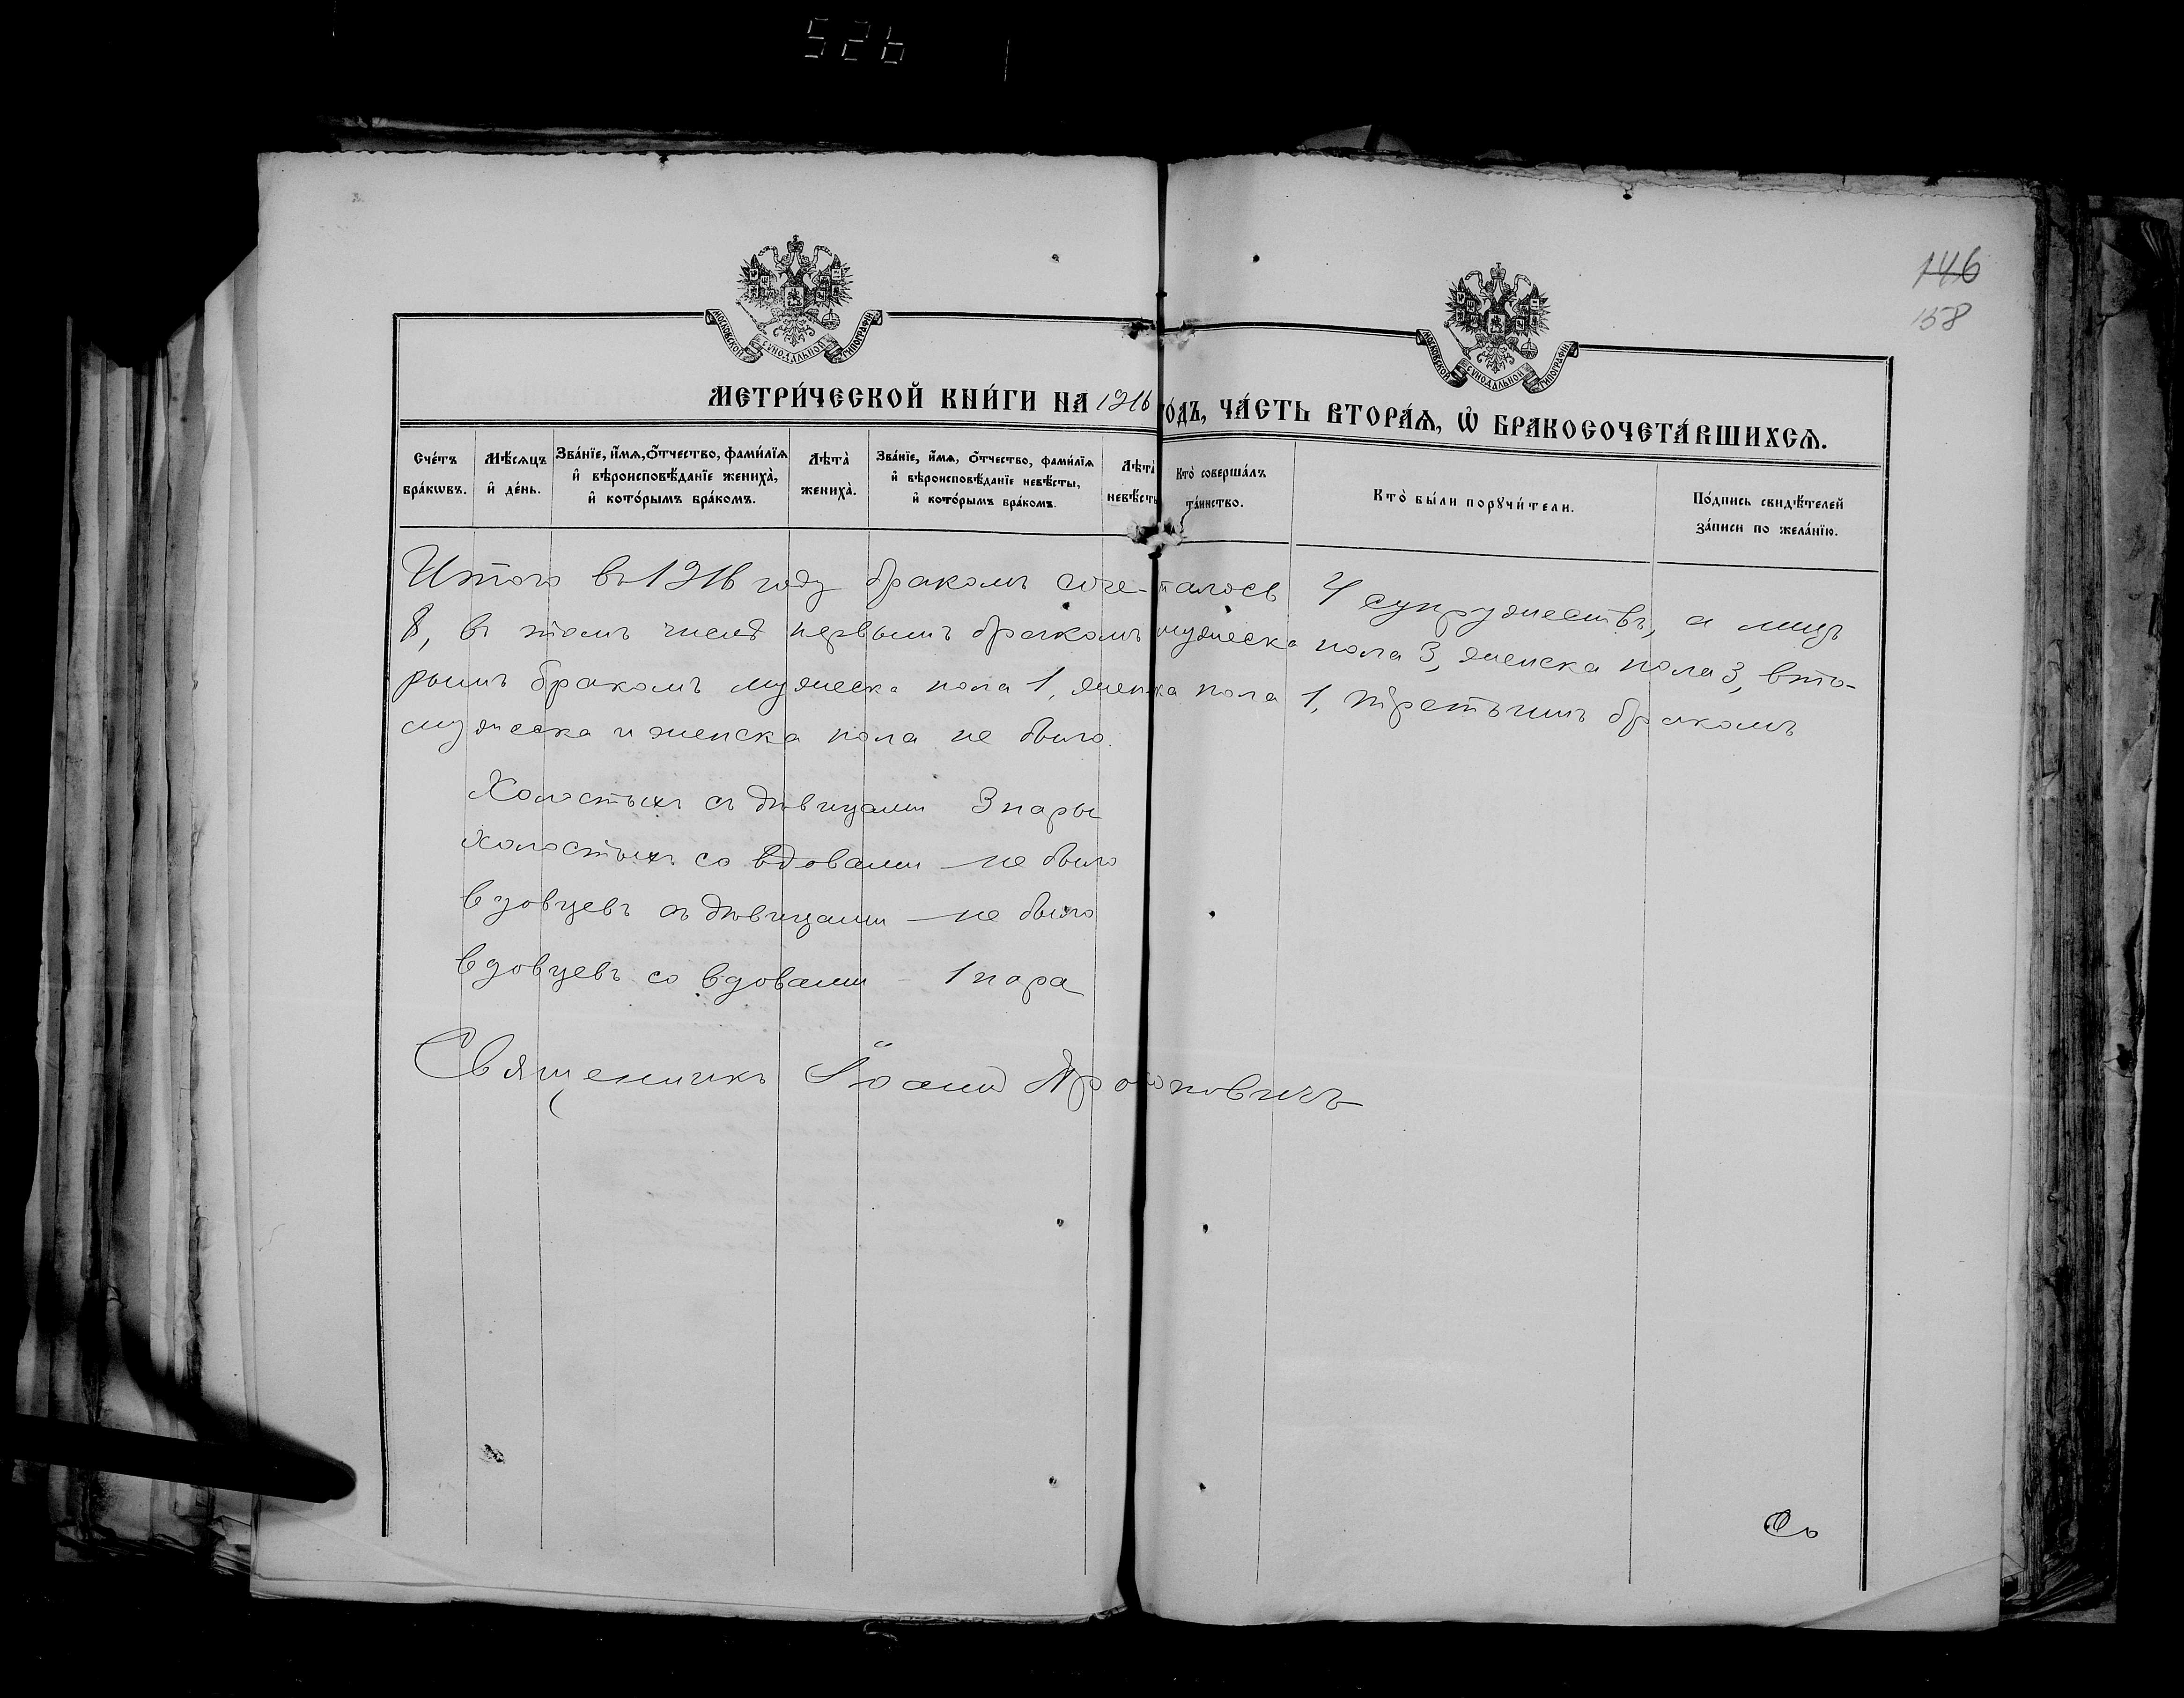 526
146
158
МОСКОВСКОЙ СѴНОДАЛЬНОЙ ТИПОГРАФІИ
МОСКОВСКОЙ СѴНОДАЛЬНОЙ ТИПОГРАФІИ
МЕТРИ́ЧЕСКОЙ КНИ́ГИ НА 1916 ГО́ДЪ, ЧА́СТЬ ВТОРА́Ѧ, Ѡ҆ БРАКОСОЧЕТА́ВШИХСѦ.
Сче́тъ бра́кѡвъ.
Мѣ́сѧцъ и҆ де́нь.
Зва́нїе, и҆́мѧ, ѻ҆́тчество, фами́лїѧ и҆ вѣроисповѣ́данїе жениха̀, и҆ кото́рымъ бра́комъ.
Лѣта̀ жениха̀.
Зва́нїе, и҆́мѧ, ѻ҆́тчество, фами́лїѧ и҆ вѣроисповѣ́данїе невѣ́сты, и҆ кото́рымъ бра́комъ.
Лѣта̀ невѣ́сты
Кто̀ соверша́лъ та́инство.
Кто̀ бы́ли порꙋчи́тели.
По́дпись свидѣ́телей за́писи по жела́нїю.
Итого въ 1916 году бракомъ соче-талось 4 супружествъ, а лицъ
8, въ томъ числѣ первымъ бракомъ мужеска пола 3, женска пола 3, вто-
рымъ бракомъ мужеска пола 1, женска пола 1, третьимъ бракомъ
мужеска и женска пола не было.
Холостыхъ съ дѣвицами 3 пары
Холостыхъ со вдовами — не было
Вдовцевъ съ дѣвицами — не было
Вдовцевъ со вдовами — 1 пара
Священникъ Іоаннъ
Съ